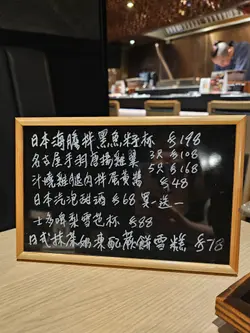 日本海膽拌黑魚籽杯 $198
名古屋手羽唐揚雞翼 3只$108
5只$168
汁燒雞腿肉拌蛋黃醬 $48
日本汽泡甜酒 $68 買一送一
士多啤梨雪芭杯 $88
日式抹茶奶凍配蕨餅雪糕 $78